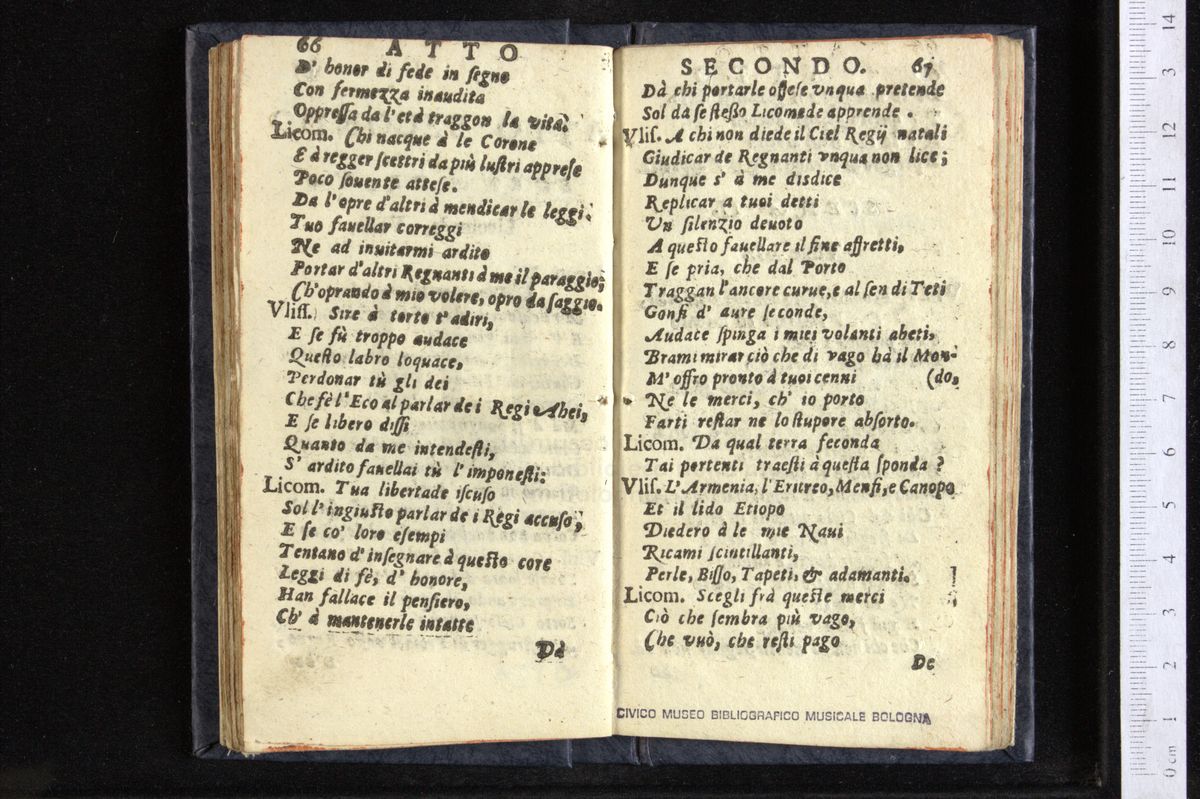 66 ATTO
D' honor di fede in segno
Con fermezza inaudita
Oppressa da l'età traggon la vità.
Licom. Chi nacque à le Corone
E à regger scettri da più lustri apprese
Poco souente attese.
Da l'opre d'altri à mendicar le leggi.
Tuo fauellar correggi
Ne ad inuitarmi ardito
Portar d'altri Regnanti à me il paraggio;
Ch'oprando à mio volere, opro da saggio.
Vliss. Sire à torto t'adiri,
E se fù troppo audace
Questo labro loquace,
Perdonar tù gli dei
Che fè l'Eco al parlar de i Regi Ahei,
E se libero dissi
Quanto da me intendesti,
S' ardito fauellai tù l'imponesti.
Licom. Tua libertade iscuso
Sol l'ingiusto parlar de i Regi accuso,
E se co' loro esempi
Tentano d'insegnare à questo core
Leggi di fè, d' honore,
Han fallace il pensiero,
Ch' à mantenerle intatte
Dà
SECONDO. 67
Dà chi portarle offese vnqua pretende
Sol da se stesso Licomede apprende.
Vlis. A chi non diede il Ciel Regij natali
Giudicar de Regnanti vnqua non lice;
Dunque s' à me disdice
Replicar a tuoi detti
Un silenzio deuoto
A questo fauellare il fine affretti,
E se pria, che dal Porto
Traggan l'ancore curue, e al sen di Teti
Gonfi d' aure seconde,
Audace spinga i miei volanti abeti,
Brami mirar ciò che di vago hà il Mon-
M' offro pronto à tuoi cenni (do,
Ne le merci, ch' io porto
Farti restar ne lo stupore absorto.
Licom. Da qual terra feconda
Tai portenti traesti à questa sponda?
Vlis. L'Armenia, l'Eritreo, Menfi, e Canopo
Et il lido Etiopo
Diedero à le mie Naui
Ricami scintillanti,
Perle, Bisso, Tapeti, & adamanti.
Licom. Scegli frà queste merci
Ciò che sembra più vago,
Che vuò, che resti pago
De
CIVICO MUSEO BIBLIOGRAFICO MUSICALE BOLOGNA
0 cm 1 2 3 4 5 6 7 8 9 10 11 12 3 14